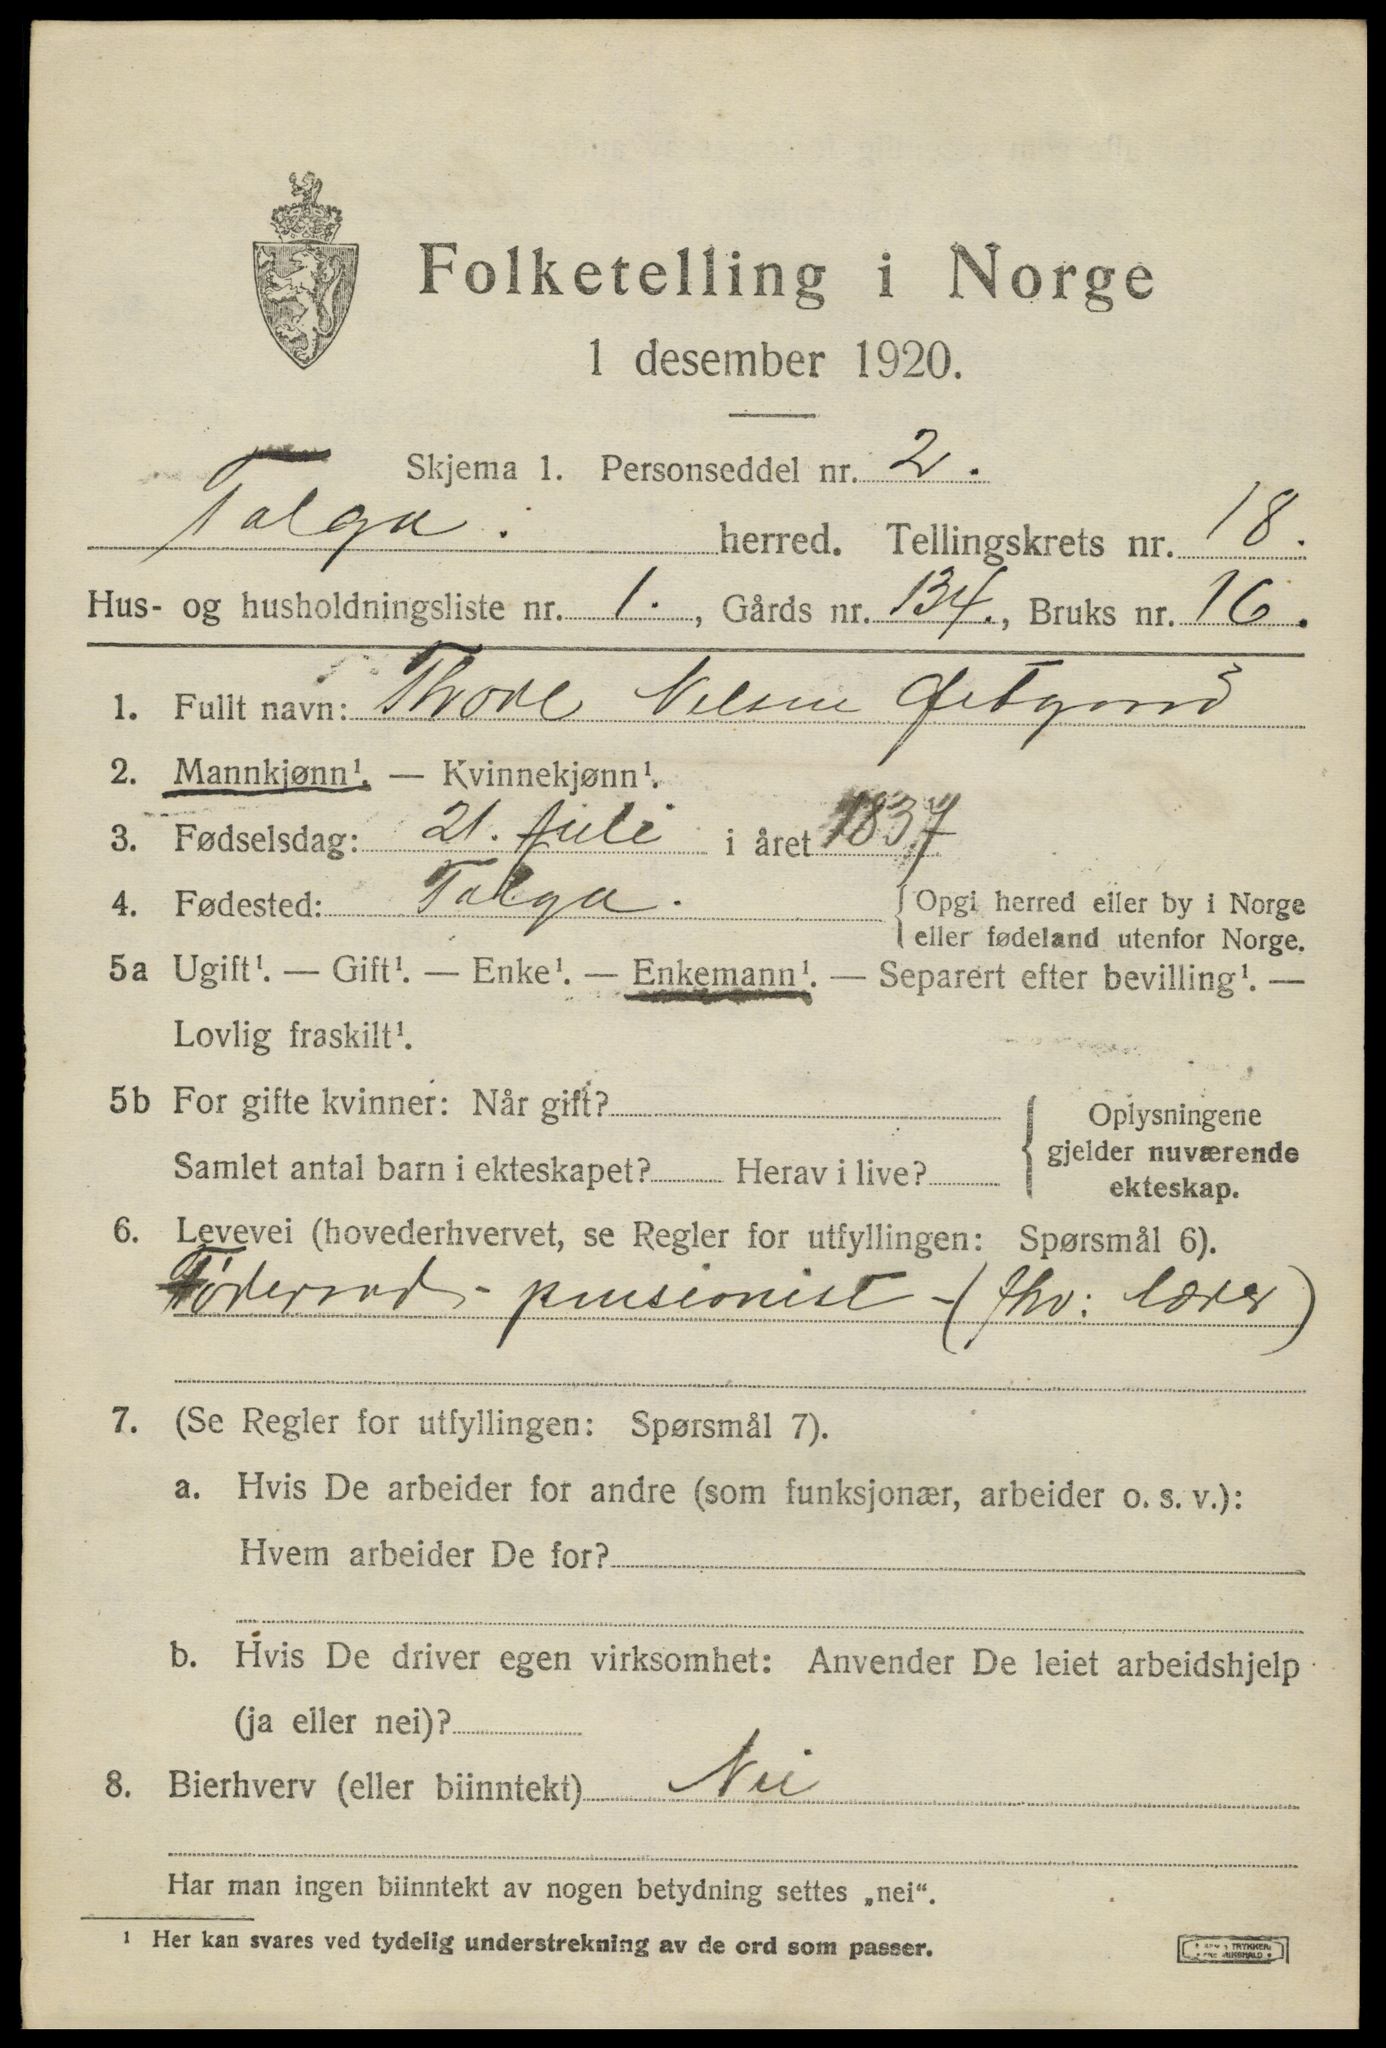 Folketelling i Norge
1 desember 1920.
Skjema 1. Personseddel nr. 2.
Tolga. herred. Tellingskrets nr. 18.
Hus- og husholdningsliste nr. 1., Gårds nr. 134., Bruks nr. 16.
1. Fullt navn: Nilsen
2. Mannkjønn¹. — Kvinnekjønn¹.
3. Fødselsdag: 21. juli i året 1837
4. Fødested: Tolga. { Opgi herred eller by i Norge
eller fødeland utenfor Norge.
5a Ugift¹. — Gift¹. — Enke¹. — Enkemann¹. — Separert efter bevilling¹. —
Lovlig fraskilt¹.
5b For gifte kvinner: Når gift?
Samlet antal barn i ekteskapet? Herav i live?
{ Oplysningene
gjelder nuværende
ekteskap.
6. Levevei (hovederhvervet, se Regler for utfyllingen: Spørsmål 6).
Föderaad - pensionist - (fhv: lærer)
7. (Se Regler for utfyllingen: Spørsmål 7).
a. Hvis De arbeider for andre (som funksjonær, arbeider o. s. v.):
Hvem arbeider De for?
b. Hvis De driver egen virksomhet: Anvender De leiet arbeidshjelp
(ja eller nei)?
8. Bierhverv (eller biinntekt) Nei
Har man ingen biinntekt av nogen betydning settes „nei“.
¹ Her kan svares ved tydelig understrekning av de ord som passer.